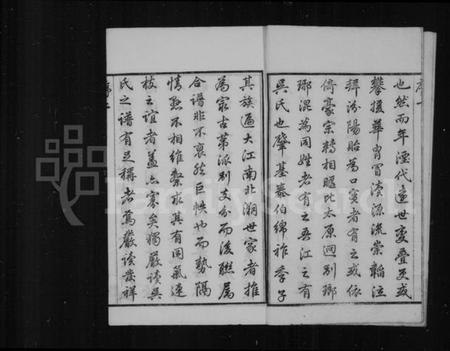 也然而年湮代遠世變疊更或
攀援華胄冒濬源流崇韜泣
拜汾陽貽為口實者有之或依
倚豪宗矜相矚比太原迥別瑯
瑯混為同姓者有之吾江之有
吳氏也肇基泰伯綿祚季子
其族遍大江南北溯世家者推
為最古第派別支分而後聯屬
合譜非不裒然巨帙也而勢隔
情懸不相維繫求其有同氣連
枝之誼者蓋亦寡矣獨嚴讀吳
氏之譜有足稱者焉嚴讀發祥